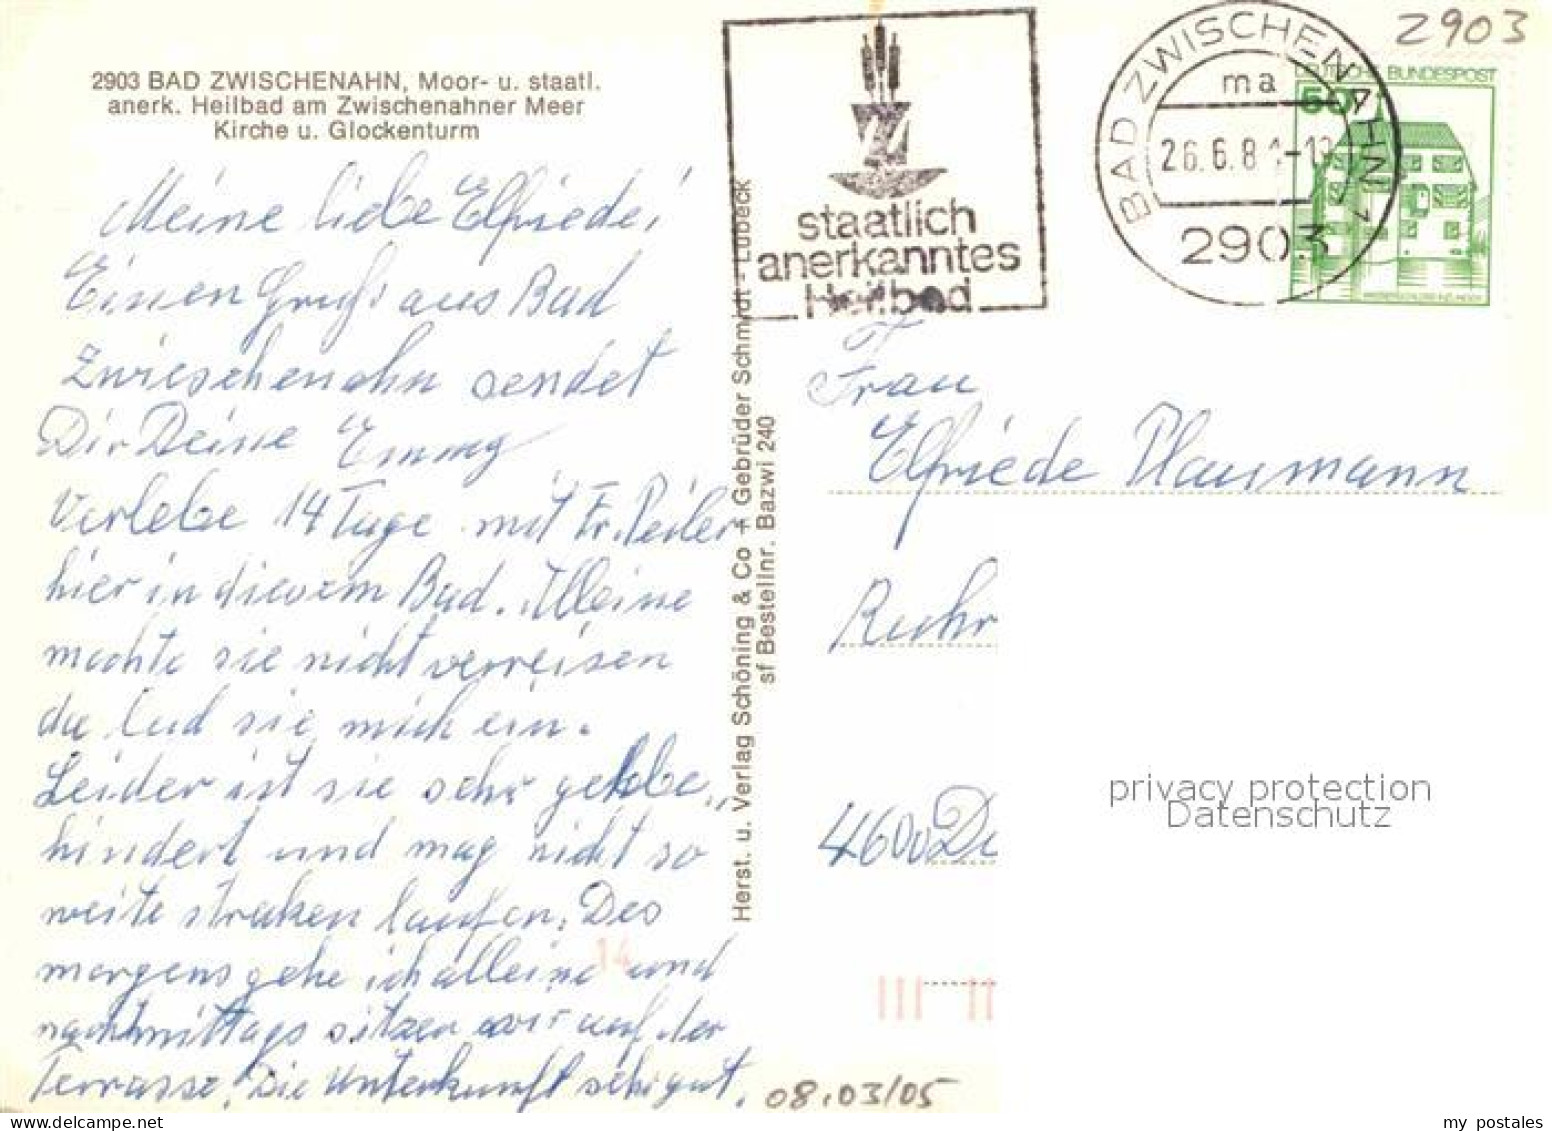 2903 BAD ZWISCHENAHN, Moor- u. staatl.
anerk. Heilbad am Zwischenahner Meer
Kirche u. Glockenturm
Meine liebe Elfriede!
Einen Gruß aus Bad
Zwieschenahn sendet
Dir Deine Emmy
Verlebe 14 Tage mit Fr. Peiler
hier in diesem Bad. Alleine
mochte sie nicht verreisen
da lud sie mich ein.
Leider ist sie sehr gehbe„
hindert und mag nicht so
weite streken laufen. Des
morgens gehe ich alleine und
nachmittags sitzen wir auf der
Terrasse. Die Unterkunft sehr gut.
Herst. u. Verlag Schöning & Co + Gebrüder Schmidt - Lübeck
sf Bestellnr. Bazwi 240
staatlich
anerkanntes
Heilbad
BAD ZWISCHENAHN 1
ma
26.6.8
2903
2903
DEUTSCHE BUNDESPOST
50
Frau
Elfriede Plaumann
Ruhr
4600 Do
privacy protection
Datenschutz
14
08.03/05
my postales